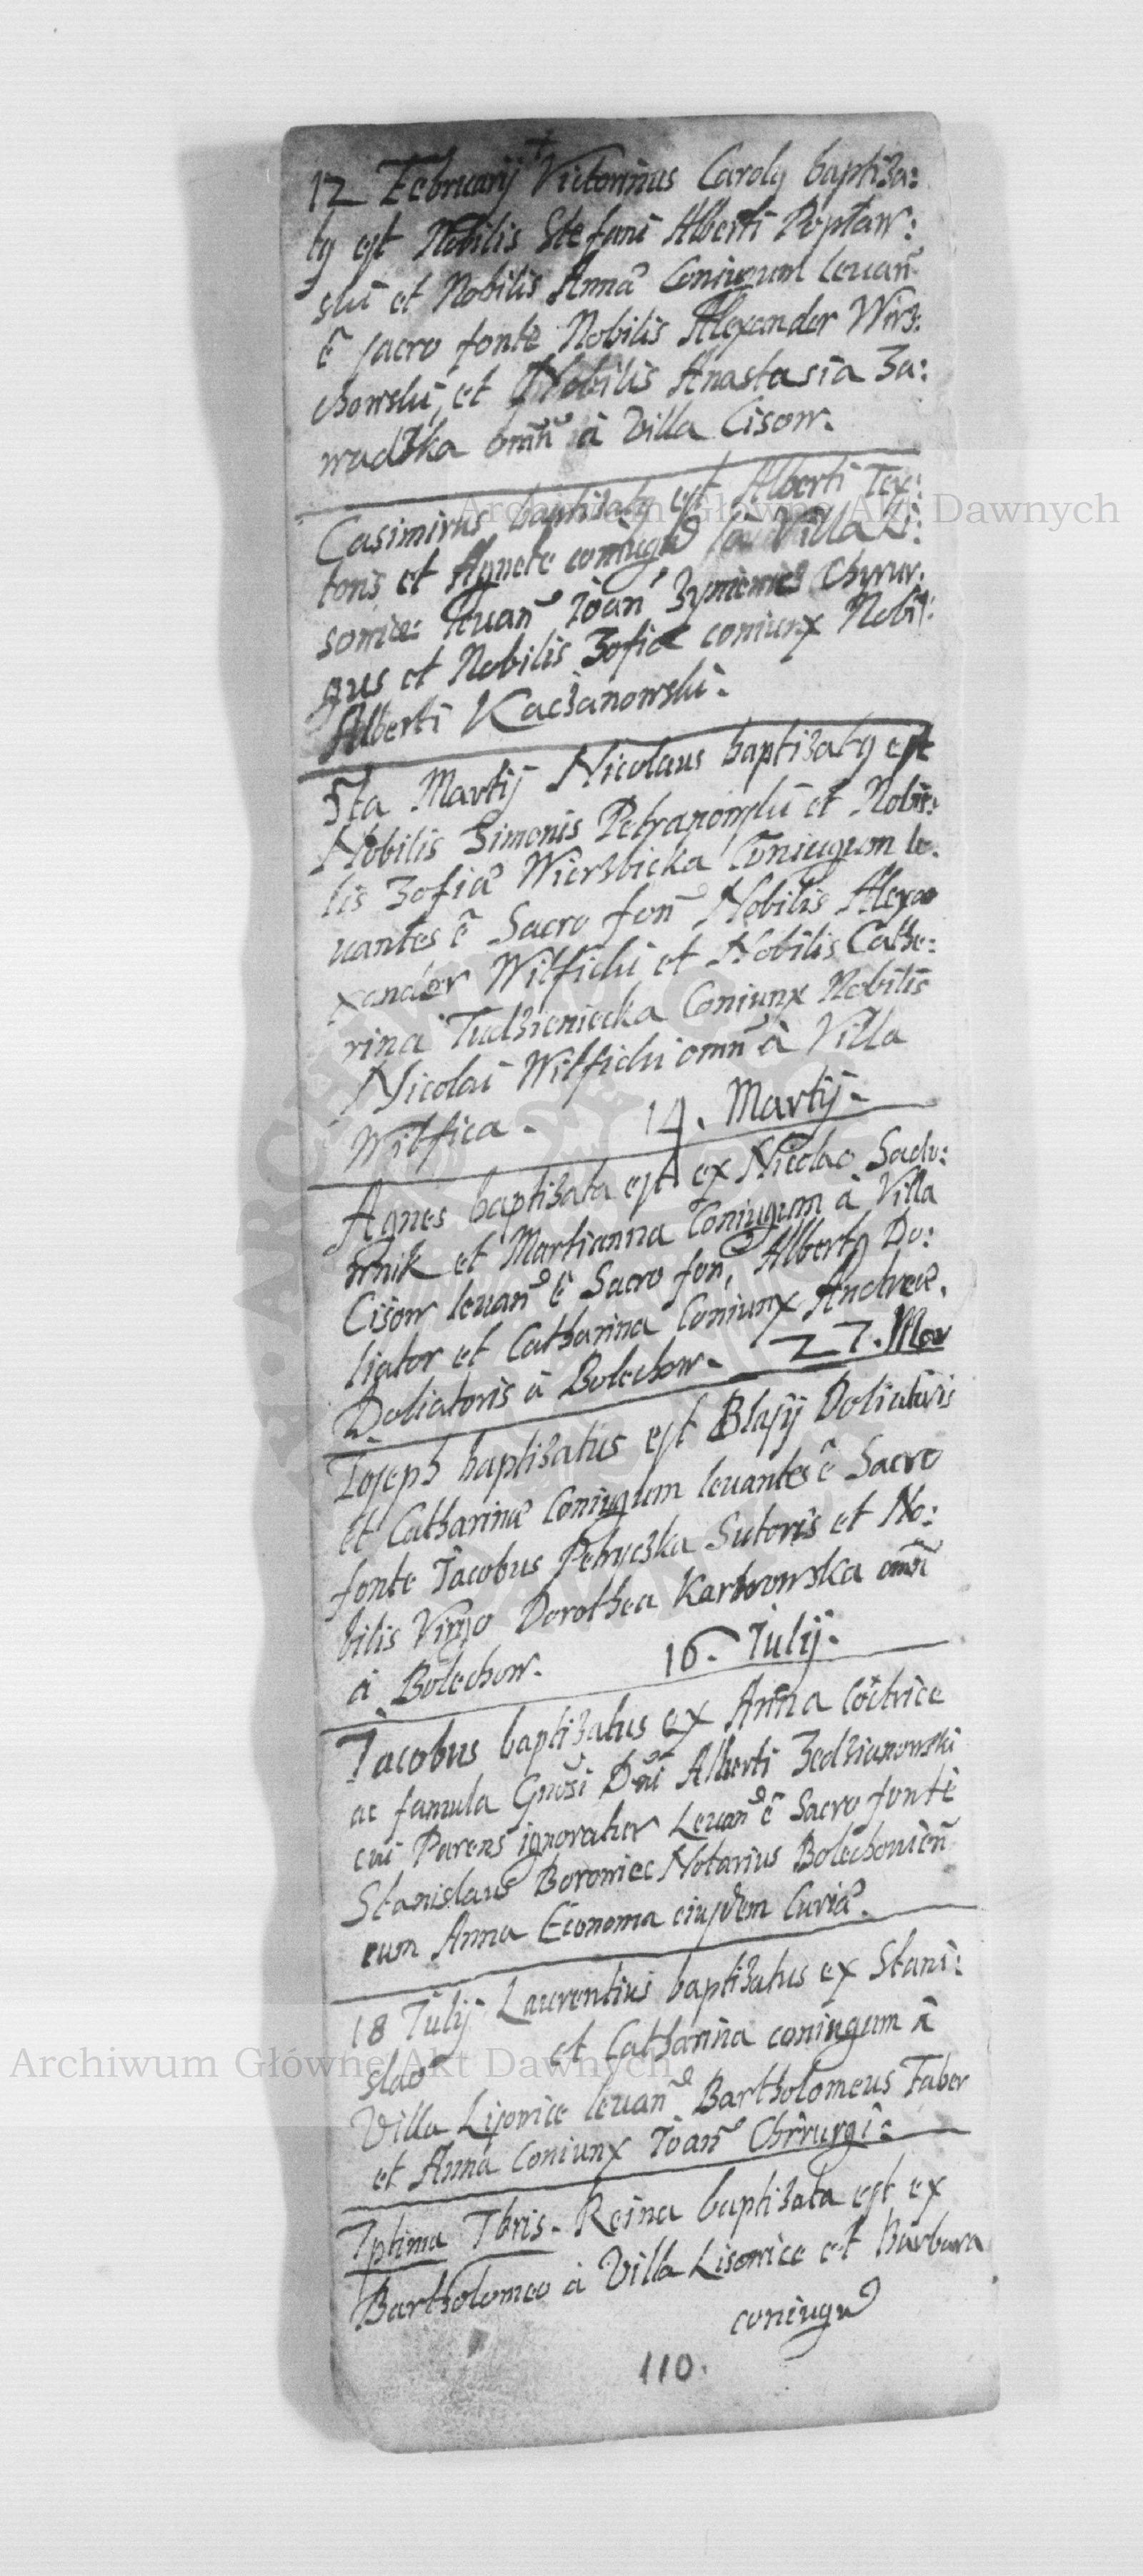 12 Februarij Victorinus Caroly baptiza:
ty est Nobilis Stefani Alberti Poptaw:
ski et Nobilis Anna Coniugum levan
e sacro fonte Nobilis Alexander Wirz:
chowski, et Nobilis Anastasia Za:
wadzka omn à Villa Cisow.
Casimirus baptizaty est Alberti Tex:
toris et Agnete coniugu à Villa Li:
sowice levan Ioan Chyrur:
gus et Nobilis Zofia coniunx Nobil:
Alberti Kaczanowski.
5ta Martij Nicolaus baptizaty est
Nobilis Simonis Petranowski et Nobi:
lis Zofia Wierzbicka Coniugum le:
vantes e Sacro fon Nobilis Alexa
xander Witficki et Nobilis Cathe:
rina Tudzieniecka Coniunx Nobilis
Nicolai Witficki omn à Villa
Witfica. 14. Martij.
Agnes baptizata est ex Nicolao Sado:
wnik et Martianna Coniugum à Villa
Cisow levan e Sacro fon, Alberty Do:
liator et Catharina Coniunx Andreæ
Doliatoris à Bolechow. 27. Mar
Ioseph baptizatus est Blasij Doliatoris
et Catharina Coniugum levantes e Sacro
fonte Iacobus Petryczka Sutoris et No:
bilis Virgo Dorothea Karwowska omn
à Bolechow. 16. Iulij.
Iacobus baptizatus ex Anna Coctrice
ac famula Gnosi Dni Alberti Zedzianowski
cui Parens ignoratur Levan e Sacro fonte
Stanislaus Boroniec Notarius Bolechovien
cum Anna Economa eiusdem Curiæ.
18 Iulij Laurentius baptizatus ex Stani:
slao et Catharina coniugum à
Villa Lisowice levan Bartholomeus Faber
et Anna Coniunx Ioan Chirurgi.
7ptima 7bris. Reina baptizata est ex
Bartholomeo à Villa Lisowice et Barbara
coniugu
110.
Archiwum Główne Akt Dawnych
Archiwum Główne Akt Dawnych